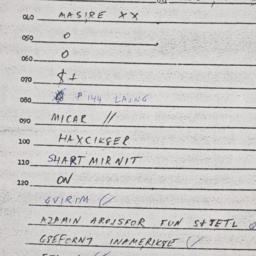 040 MASIRE XX
050 0
060 0
070 $ 1
080 # 144 LAING
090 MICAR //
100 HAXCIKGER
110 SHART MIRNIT
120 ON
GVIRIM ✓
AZAMIN FUN STTETL
GSEFORNT INAMERIKGE ✓